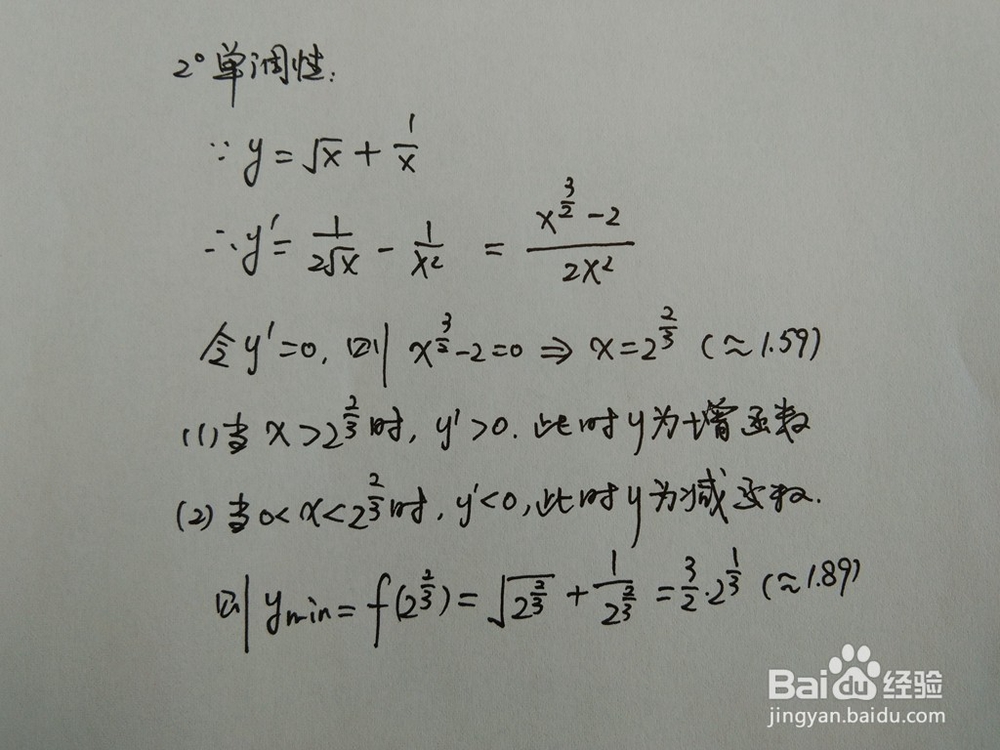 2° 单调性:
∵ y = √x + 1/x
∴ y' = 1/(2√x) - 1/x² = (x^(3/2) - 2)/(2x²)
令y'=0, 则 x^(3/2)-2=0 ⇒ x=2^(2/3) (≈1.59)
(1) 当 x>2^(2/3)时, y'>0. 此时y为增函数
(2) 当 0<x<2^(2/3)时, y'<0, 此时y为减函数.
则 ymin = f(2^(2/3)) = √(2^(2/3)) + 1/(2^(2/3)) = 3/2·2^(1/3) (≈1.89)
Baidu经验
jingyan.baidu.com